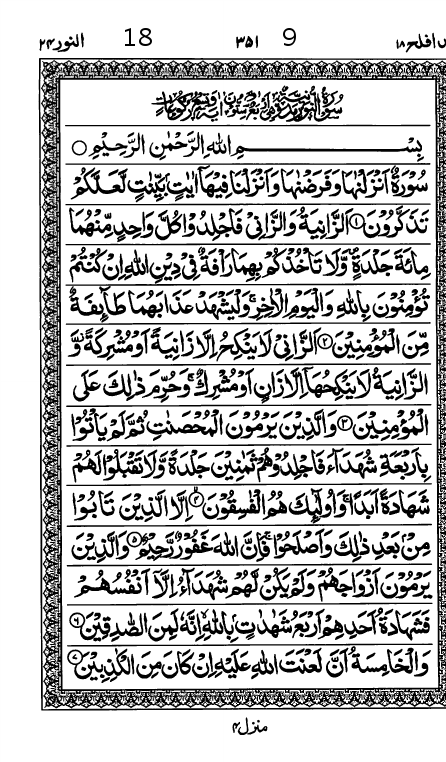 قد افلح ۱۸ 9 ۳۵۱ 18 النور ۲۴
بِسْمِ اللهِ الرَّحْمٰنِ الرَّحِيْمِ ○
سُوْرَةٌ اَنْزَلْنٰهَا وَفَرَضْنٰهَا وَاَنْزَلْنَا فِيْهَاۤ اٰيٰتٍۭ بَيِّنٰتٍ لَّعَلَّكُمْ
تَذَكَّرُوْنَ ۱ اَلزَّانِيَةُ وَالزَّانِيْ فَاجْلِدُوْا كُلَّ وَاحِدٍ مِّنْهُمَا
مِائَةَ جَلْدَةٍ ۪ وَّلَا تَاْخُذْكُمْ بِهِمَا رَاْفَةٌ فِيْ دِيْنِ اللهِ اِنْ كُنْتُمْ
تُؤْمِنُوْنَ بِاللهِ وَالْيَوْمِ الْاٰخِرِ ۚ وَلْيَشْهَدْ عَذَابَهُمَا طَآئِفَةٌ
مِّنَ الْمُؤْمِنِيْنَ ۲ اَلزَّانِيْ لَا يَنْكِحُ اِلَّا زَانِيَةً اَوْ مُشْرِكَةً ؗ وَّ
الزَّانِيَةُ لَا يَنْكِحُهَاۤ اِلَّا زَانٍ اَوْ مُشْرِكٌ ۚ وَحُرِّمَ ذٰلِكَ عَلَى
الْمُؤْمِنِيْنَ ۳ وَالَّذِيْنَ يَرْمُوْنَ الْمُحْصَنٰتِ ثُمَّ لَمْ يَاْتُوْا
بِاَرْبَعَةِ شُهَدَآءَ فَاجْلِدُوْهُمْ ثَمٰنِيْنَ جَلْدَةً وَّلَا تَقْبَلُوْا لَهُمْ
شَهَادَةً اَبَدًا ۚ وَاُولٰٓئِكَ هُمُ الْفٰسِقُوْنَ ۴ اِلَّا الَّذِيْنَ تَابُوْا
مِنْۢ بَعْدِ ذٰلِكَ وَاَصْلَحُوْا ۚ فَاِنَّ اللهَ غَفُوْرٌ رَّحِيْمٌ ۵ وَالَّذِيْنَ
يَرْمُوْنَ اَزْوَاجَهُمْ وَلَمْ يَكُنْ لَّهُمْ شُهَدَآءُ اِلَّاۤ اَنْفُسُهُمْ
فَشَهَادَةُ اَحَدِهِمْ اَرْبَعُ شَهٰدٰتٍۭ بِاللهِ ۙ اِنَّهٗ لَمِنَ الصّٰدِقِيْنَ ۶
وَالْخَامِسَةُ اَنَّ لَعْنَتَ اللهِ عَلَيْهِ اِنْ كَانَ مِنَ الْكٰذِبِيْنَ ۷
منزل ۴